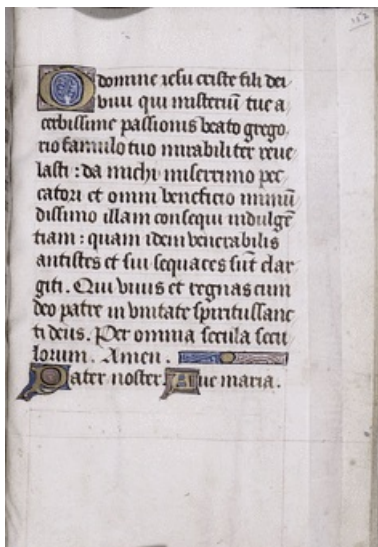 152
O domine iesu criste fili dei
viui qui misteriū tue a
cerbissime passionis beato grego
rio famulo tuo mirabiliter reue
lasti : da michi miserrimo pec
catori et omni beneficio immū
dissimo illam consequi indulgē
tiam : quam idem venerabilis
antistes et sui sequaces sūt elar
giti . Qui viuis et regnas cum
deo patre in vnitate spiritussanc
ti deus . Per omnia secula secu
lorum . Amen .
Pater noster . Aue maria .